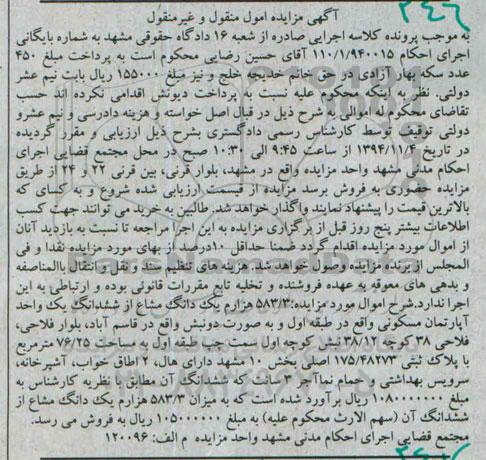 ۳۴۶
آگهی مزایده امول منقول و غیرمنقول
به موجب پرونده کلاسه اجرایی صادره از شعبه ۱۶ دادگاه حقوقی مشهد به شماره بایگانی
اجرای احکام ۱۱۰/۱/۹۴۰۰۱۵ آقای حسین رضایی محکوم است به پرداخت مبلغ ۴۵۰
عدد سکه بهار آزادی در حق خانم خدیجه خلج و نیز مبلغ ۱۵۵۰۰۰ ریال بابت نیم عشر
دولتی. نظر به اینکه محکوم علیه نسبت به پرداخت دیونش اقدامی نکرده اند حسب
تقاضای محکوم له اموالی به شرح ذیل در قبال اصل خواسته و هزینه دادرسی و نیم عشرو
دولتی توقیف توسط کارشناس رسمی دادگستری بشرح ذیل ارزیابی و مقرر گردیده
در تاریخ ۱۳۹۴/۱۱/۴ از ساعت ۹:۴۵ الی ۱۰:۳۰ صبح در محل مجتمع قضایی اجرای
احکام مدنی مشهد واحد مزایده واقع در مشهد، بلوار قرنی، بین قرنی ۲۲ و ۲۴ از طریق
مزایده حضوری به فروش برسد مزایده از قیسمت ارزیابی شده شروع و به کسای که
بالاترین قیمت را پیشنهاد نمایند واگذار خواهد شد. طالبین به خرید می توانند جهت کسب
اطلاعات بیشتر پنج روز قبل از برگزاری مزایده به این اجرا مراجعه تا نسبت به بازدید آنان
از اموال مورد مزایده اقدام گردد ضمنا حداقل ۱۰درصد از بهای مورد مزایده نقدا و فی
المجلس از برنده مزایده وصول خواهد شد. هزینه های تنظیم سند و نقل و انتقال باالمناصفه
و بدهی های معوقه به عهده فروشنده و تخلیه تابع مقررات قانونی بوده و ارتباطی به این
اجرا ندارد.شرح اموال مورد مزایده:۵۸۳/۳ هزارم یک دانگ مشاع از ششدانگ یک واحد
آپارتمان مسکونی واقع در طبقه اول و به صورت دونبش واقع در قاسم آباد، بلوار فلاحی،
فلاحی ۳۸ کوچه ۳۸/۱۲ نبش کوچه اول سمت چپ طبقه اول به ساحت ۷۶/۲۵ مترمربع
با پلاک ثبتی ۱۷۵/۴۸۲۷۳ اصلی بخش ۱۰ مشهد دارای هال، ۲ اطاق خواب، آشپزخانه،
سرویس بهداشتی و حمام نماآجر ۳ سانت که ششدانگ آن مطابق با نظریه کارشناس به
مبلغ ۱۰۸۰۰۰۰۰۰۰ ریال برآورد شده است که به میزان ۵۸۳/۳ هزارم یک دانگ مشاع از
ششدانگ آن (سهم الارث محکوم علیه) به مبلغ ۱۰۵۰۰۰۰۰۰ ریال به فروش می رسد.
مجتمع قضایی اجرای احکام مدنی مشهد واحد مزایده م الف: ۱۲۰۰۹۶
ParsNamadData